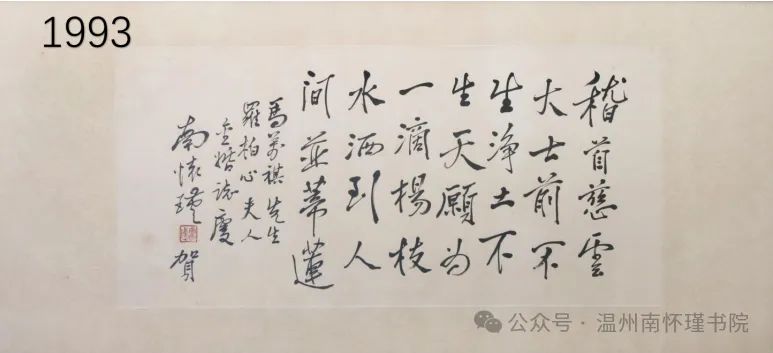 1993
稽首慈雲
大士前不
生淨土不
生天願為
一滴楊枝
水洒到人
間並蒂蓮
馬萬祺先生
羅柏心夫人
金婚誌慶
南懷瑾 賀
公众号 · 温州南怀瑾书院